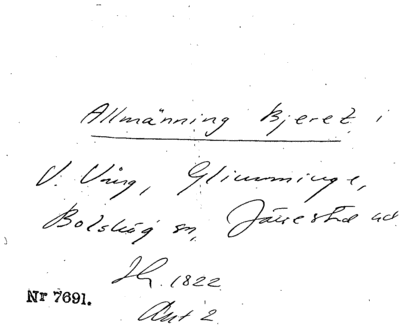 Allmänning Bjeret i
V. Vång, Glimminge,
Bolshög sn, Järrestad hd
Jh. 1822
Nr 7691.
Akt 2